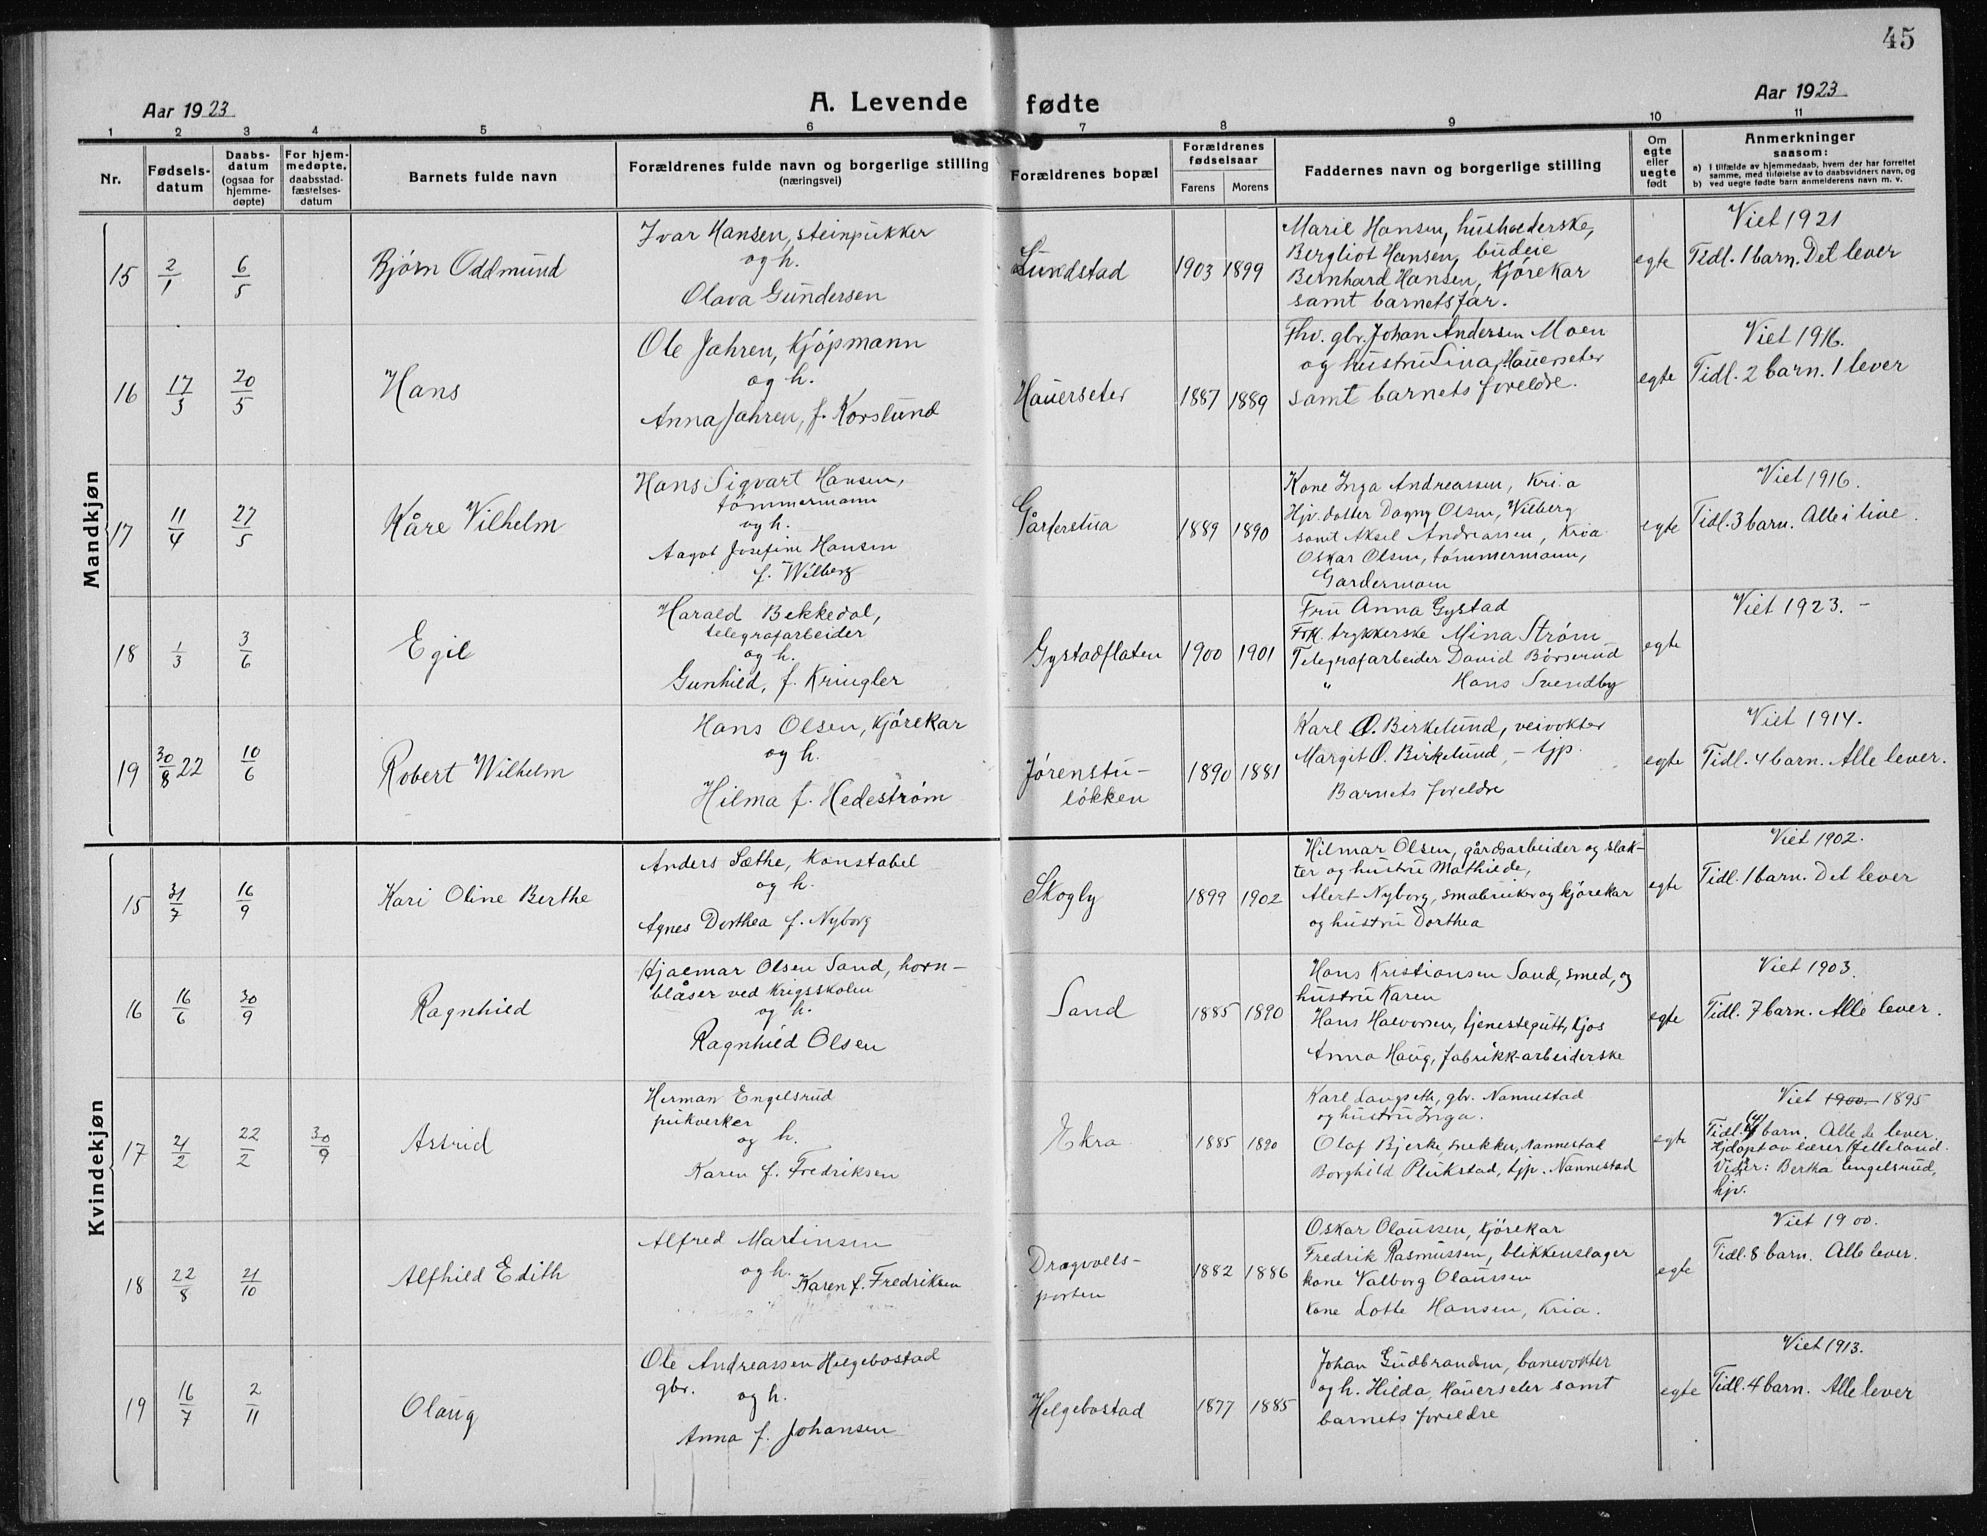 45
Aar 1923
A. Levende fødte
Aar 1923
1 2 3 4 5 6 7 8 9 10 11
Nr.
Fødsels-
datum
Daabs-
datum
(ogsaa for
hjemme-
døpte)
For hjem-
medøpte,
daabsstad-
fæstelses-
datum
Barnets fulde navn
Forældrenes fulde navn og borgerlige stilling
(næringsvei)
Forældrenes bopæl
Forældrenes
fødselsaar
Farens Morens
Faddernes navn og borgerlige stilling
Om
egte
eller
uegte
født
Anmerkninger
saasom:
a) i tilfælde av hjemmedaab, hvem der har forrettet
samme, med tilføielse av to daabsvidners navn, og
b) ved uegte fødte barn anmelderens navn m. v.
Mandkjøn
15 2/1 6/5
Bjørn Oddmund
Ivar Hansen, steinpukker
og h.
Olava Gundersen
Lundstad
1903 1899
Marie Hansen, husholderske,
Bergliot Hansen, budeie
Bernhard Hansen, kjørekar
samt barnets far.
egte
Viet 1921
Tidl. 1 barn. Det lever
16 17/3 20/5
Hans
Ole Jahren, kjøpmann
og h.
Anna Jahren, f. Korslund
Hauerseter
1887 1889
Fhv. gbr. Johan Andersen Moen
og hustru Lina, Hauerseter
samt barnets foreldre.
egte
Viet 1916.
Tidl. 2 barn. 1 lever
17 11/4 27/5
Kåre Vilhelm
Hans Sigvart Hansen,
tømmermann
og h.
Aagot Josefine Hansen
f. Wilberg
1889 1890
Kone Inga Andreassen, Kria
Hjv. dotter Dagny Olsen, Vilberg
samt Aksel Andreassen, Kria
Oskar Olsen, tømmermann,
Gardermoen
egte
Viet 1916.
Tidl. 3 barn. Alle i live.
18 1/3 3/6
Egil
Harald Bekkedal,
telegrafarbeider
og h.
Gunhild, f. Kringler
Gystadflaten
1900 1901
Fru Anna Gystad
Frk. trykkerske Mina Strøm
Telegrafarbeider David Børserud
" Hans Svendby
egte
Viet 1923. -
19 30/8 22 10/6
Robert Wilhelm
Hans Olsen, kjørekar
og h.
Hilma f. Hedestrøm
Jørenstu-
løkken
1890 1881
Karl O. Birkelund, veivokter
Margit O. Birkelund, - tjp.
Barnets foreldre
egte
Viet 1914.
Tidl. 4 barn. Alle lever.
Kvindekjøn
15 31/7 16/9
Kari Oline Berthe
Anders Sæthe, konstabel
og h.
Agnes Dorthea f. Nyborg
Skogly
1899 1902
Hilmar Olsen, gårdsarbeider og slak-
ter og hustru Mathilde,
Alert Nyborg, småbruker og kjørekar
og hustru Dorthea
egte
Viet 1902.
Tidl. 1 barn. Det lever
16 16/6 30/9
Ragnhild
Hjalmar Olsen Sand, horn-
blåser ved Krigsskolen
og h.
Ragnhild Olsen
Sand
1885 1890
Hans Kristiansen Sand, smed, og
hustru Karen
Hans Halvorsen, tjenestegutt, Kjos
Anna Haug, fabrikk-arbeiderske
egte
Viet 1903.
Tidl. 7 barn. Alle lever.
17 21/2 22/2 30/9
Astrid
Herman Engelsrud
pukverker
og h.
Karen f. Fredriksen
Ekra
1885 1890
Karl Langseth, gbr. Nannestad
og hustru Inga.
Olaf Bjerke snekker, Nannestad
Borghild Plukstad, tjp. Nannestad
egte
Viet 1900 1895
Tidl. 4 barn. Alle de lever
Hjdøpt av lærer Helleland.
Vidner: Bertha Engelsrud,
hjv.
18 22/8 21/10
Alfhild Edith
Alfred Martinsen
og h.
Karen f. Fredriksen
Dragvolls-
porten
1882 1886
Oskar Olaussen, kjørekar
Fredrik Rasmussen, blikkenslager
kone Valborg Olaussen
kone Lotte Hansen, Kria.
egte
Viet 1900.
Tidl. 8 barn. Alle lever.
19 16/7 2/11
Olaug
Ole Andreassen Helgebostad
gbr.
og h.
Anna f. Johansen
Helgebostad
1877 1885
Johan Gudbrandsen, banevokter
og h. Hilda, Hauerseter samt
barnets foreldre
egte
Viet 1913.
Tidl. 4 barn. Alle lever